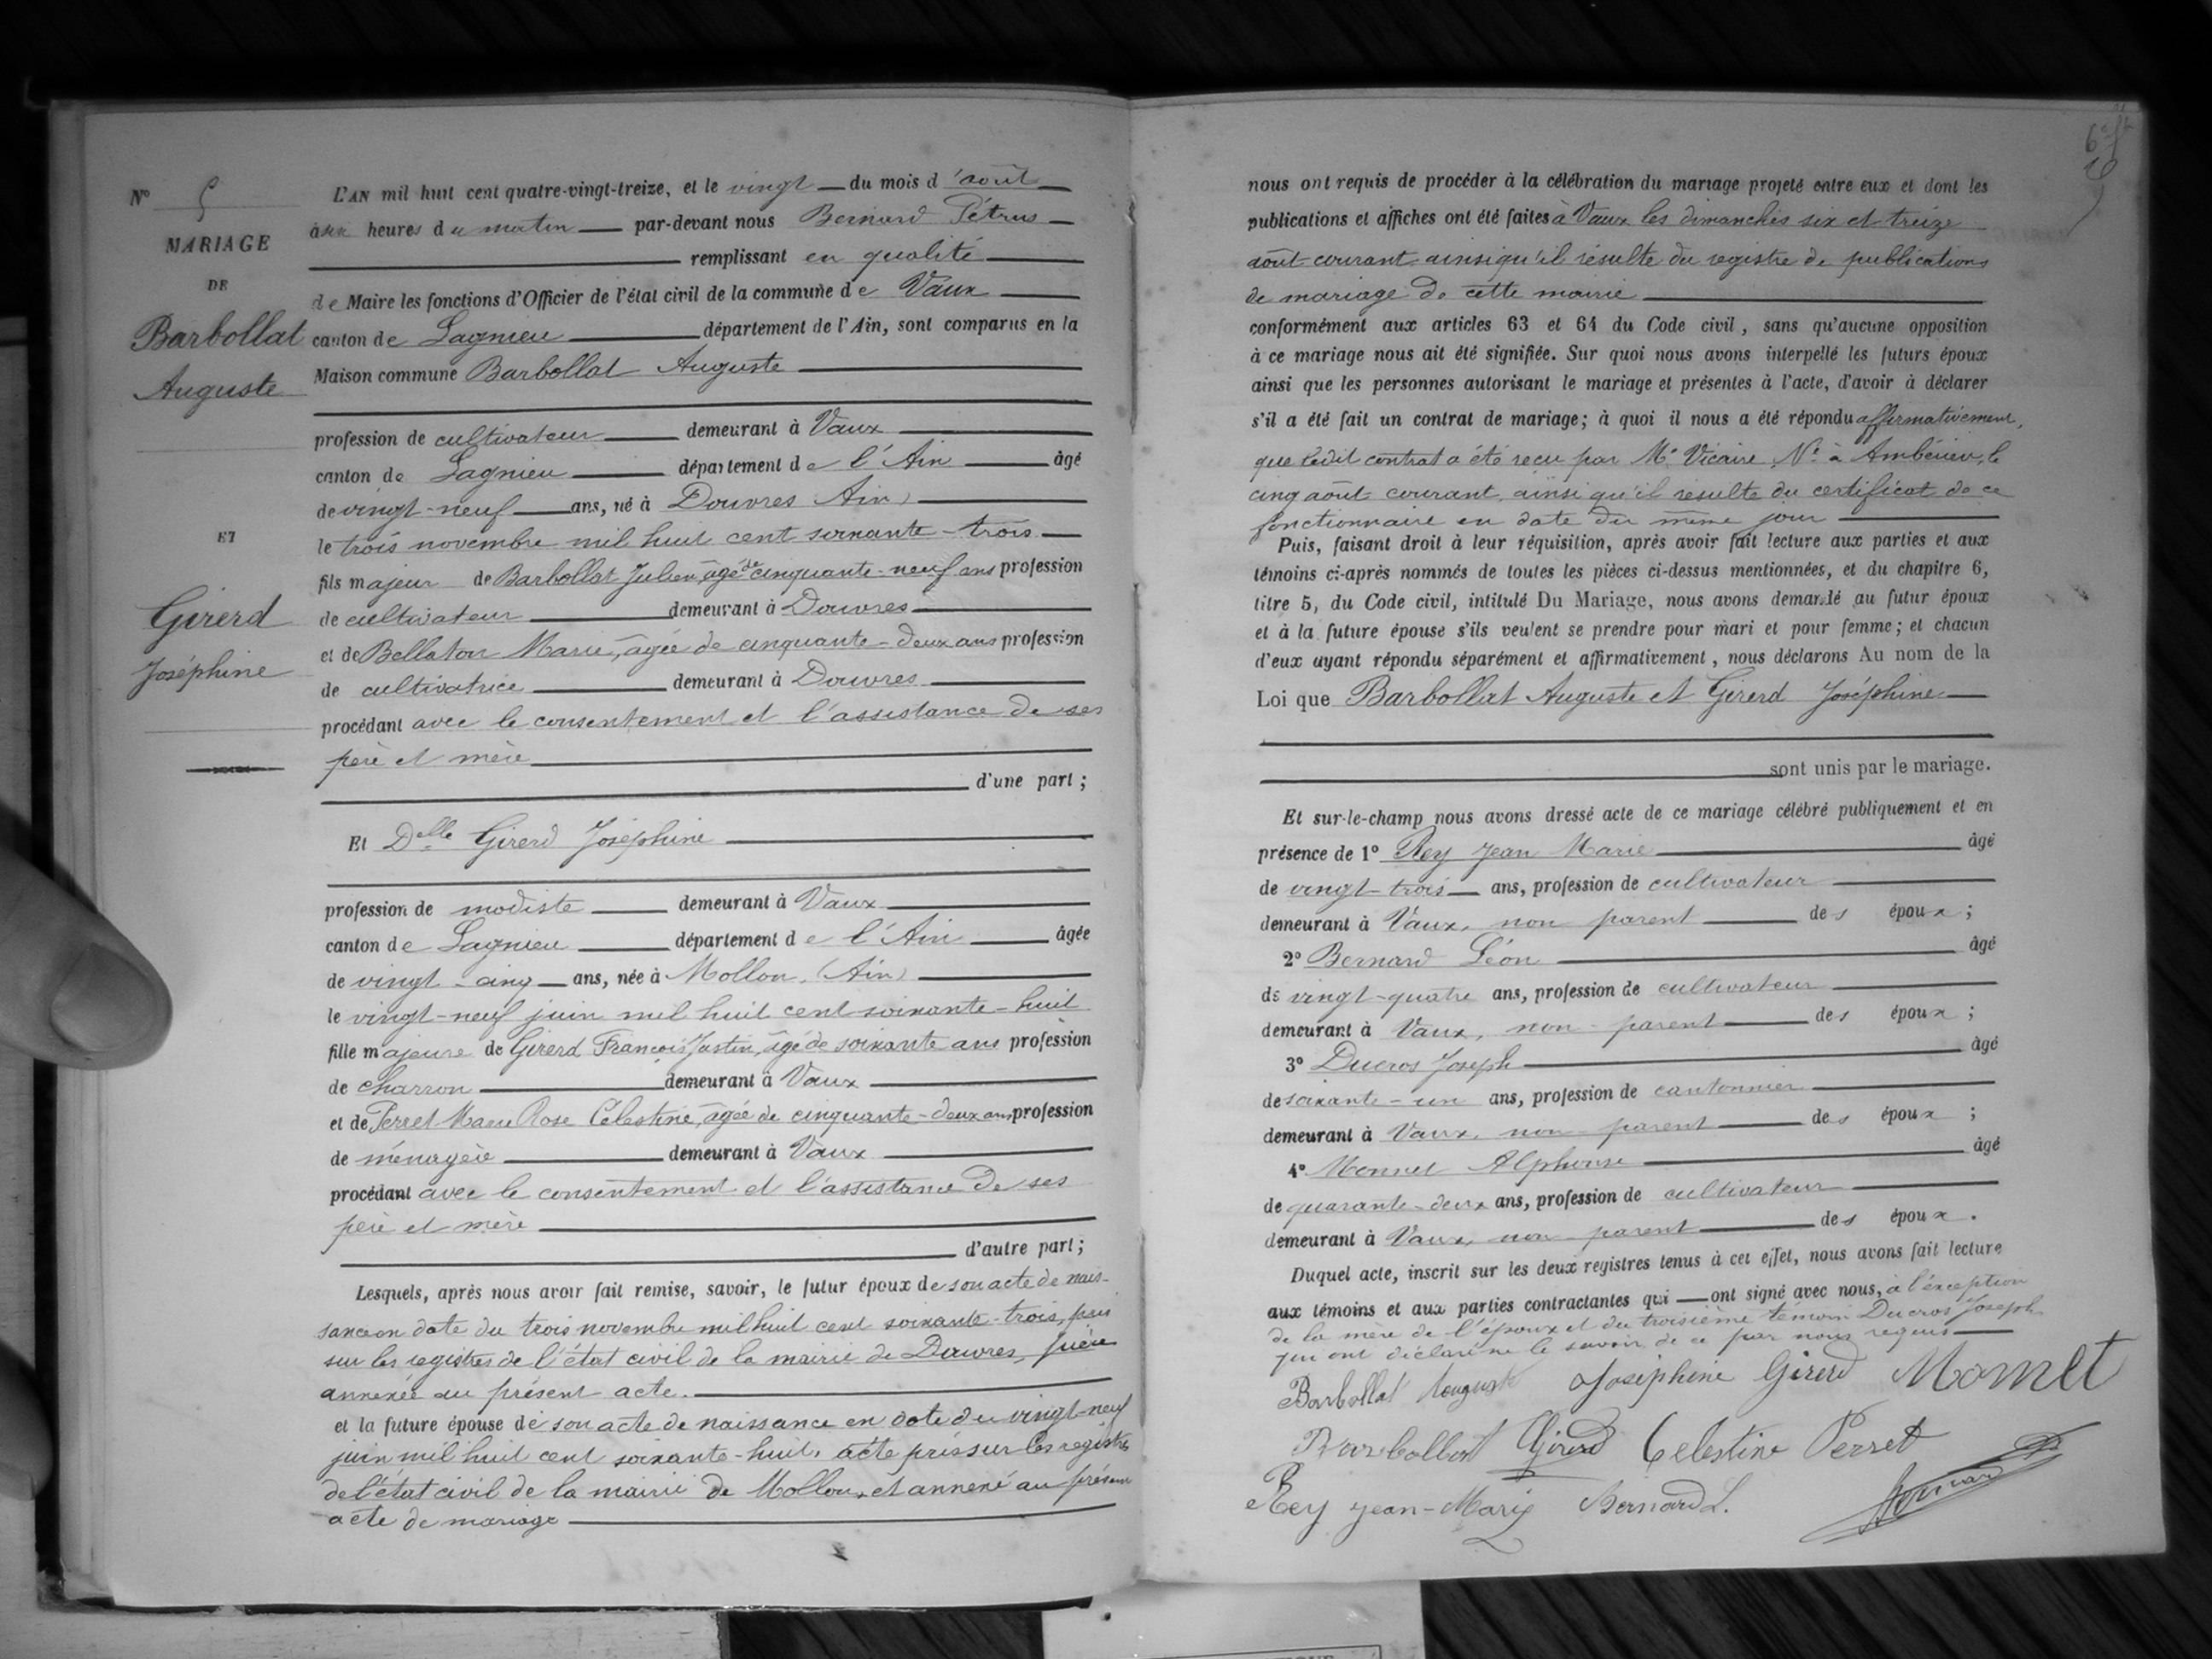 N° 5
MARIAGE
DE
Barbollat
Auguste
ET
Girerd
Joséphine
L'AN mil huit cent quatre-vingt-treize, et le vingt du mois d'août
à six heures du matin par-devant nous Bernard Pétrus
remplissant en qualité
de Maire les fonctions d'Officier de l'état civil de la commune de Vaux
canton de Lagnieu département de l'Ain, sont comparus en la
Maison commune Barbollat Auguste
profession de cultivateur demeurant à Vaux
canton de Lagnieu département de l'Ain âgé
de vingt-neuf ans, né à Douvres (Ain)
le trois novembre mil huit cent soixante-trois
fils majeur de Barbollat Julien, âgé de cinquante-neuf ans profession
de cultivateur demeurant à Douvres
et de Bellaton Marie, âgée de cinquante-deux ans profession
de cultivatrice demeurant à Douvres
procédant avec le consentement et l'assistance de ses
père et mère
d'une part ;
Et Delle Girerd Joséphine
profession de modiste demeurant à Vaux
canton de Lagnieu département de l'Ain âgée
de vingt-cinq ans, née à Mollon, (Ain)
le vingt-neuf juin mil huit cent soixante-huit
fille majeure de Girerd François Justin, âgé de soixante ans profession
de charron demeurant à Vaux
et de Perret Marie Rose Célestine, âgée de cinquante-deux ans profession
de ménagère demeurant à Vaux
procédant avec le consentement et l'assistance de ses
père et mère
d'autre part ;
Lesquels, après nous avoir fait remise, savoir, le futur époux de son acte de nais-
sance en date du trois novembre mil huit cent soixante-trois, pris
sur les registres de l'état civil de la mairie de Douvres, pièce
annexée au présent acte.
et la future épouse de son acte de naissance en date du vingt-neuf
juin mil huit cent soixante-huit, acte pris sur les registres
de l'état civil de la mairie de Mollon, et annexé au présent
acte de mariage
nous ont requis de procéder à la célébration du mariage projeté entre eux et dont les
publications et affiches ont été faites à Vaux les dimanches six et treize
août courant ainsi qu'il résulte du registre de publications
de mariage de cette mairie
conformément aux articles 63 et 64 du Code civil, sans qu'aucune opposition
à ce mariage nous ait été signifiée. Sur quoi nous avons interpellé les futurs époux
ainsi que les personnes autorisant le mariage et présentes à l'acte, d'avoir à déclarer
s'il a été fait un contrat de mariage; à quoi il nous a été répondu affirmativement,
que ledit contrat a été reçu par Me Vicaire Nre à Ambérieu, le
cinq août courant, ainsi qu'il résulte du certificat de ce
fonctionnaire en date du même jour
Puis, faisant droit à leur réquisition, après avoir fait lecture aux parties et aux
témoins ci-après nommés de toutes les pièces ci-dessus mentionnées, et du chapitre 6,
titre 5, du Code civil, intitulé Du Mariage, nous avons demandé au futur époux
et à la future épouse s'ils veulent se prendre pour mari et pour femme; et chacun
d'eux ayant répondu séparément et affirmativement, nous déclarons Au nom de la
Loi que Barbollat Auguste et Girerd Joséphine
sont unis par le mariage.
Et sur-le-champ nous avons dressé acte de ce mariage célébré publiquement et en
présence de 1° Rey Jean Marie âgé
de vingt-trois ans, profession de cultivateur
demeurant à Vaux, non parent des époux ;
2° Bernard Léon âgé
de vingt-quatre ans, profession de cultivateur
demeurant à Vaux, non-parent des époux ;
3° Ducros Joseph âgé
de soixante-un ans, profession de cantonnier
demeurant à Vaux, non-parent des époux ;
4° Monnet Alphonse âgé
de quarante-deux ans, profession de cultivateur
demeurant à Vaux, non parent des époux.
Duquel acte, inscrit sur les deux registres tenus à cet effet, nous avons fait lecture
aux témoins et aux parties contractantes qui ont signé avec nous, à l'exception
de la mère de l'époux et du troisième témoin Ducros Joseph
qui ont déclaré ne le savoir, de ce par nous requis
Barbollat Auguste Joséphine Girerd Monnet
Barbollat Girerd Celestine Perret
Rey Jean-Marie Bernard L.